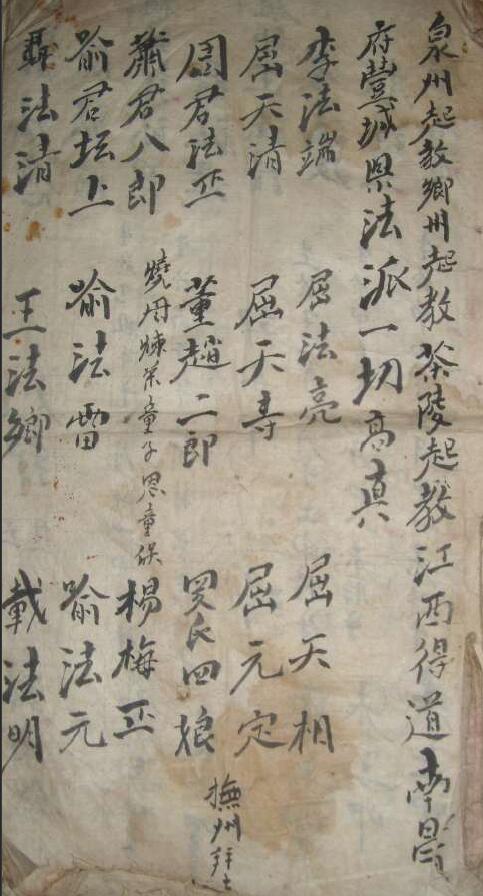 泉州起教鄉州起教茶陵起教江西得道南昌
府豐城県法派一切高真
李法端 屈法亮 屈天相
屈天清 屈天寿 屈元定
周君法正 董趙二郎 罗氏四娘 撫州拜士
蕭君八郎 燒丹煉茶童子思童侯 楊梅正
喻君坛上 喻法雷 喻法元
聶法清 王法鄉 戴法明